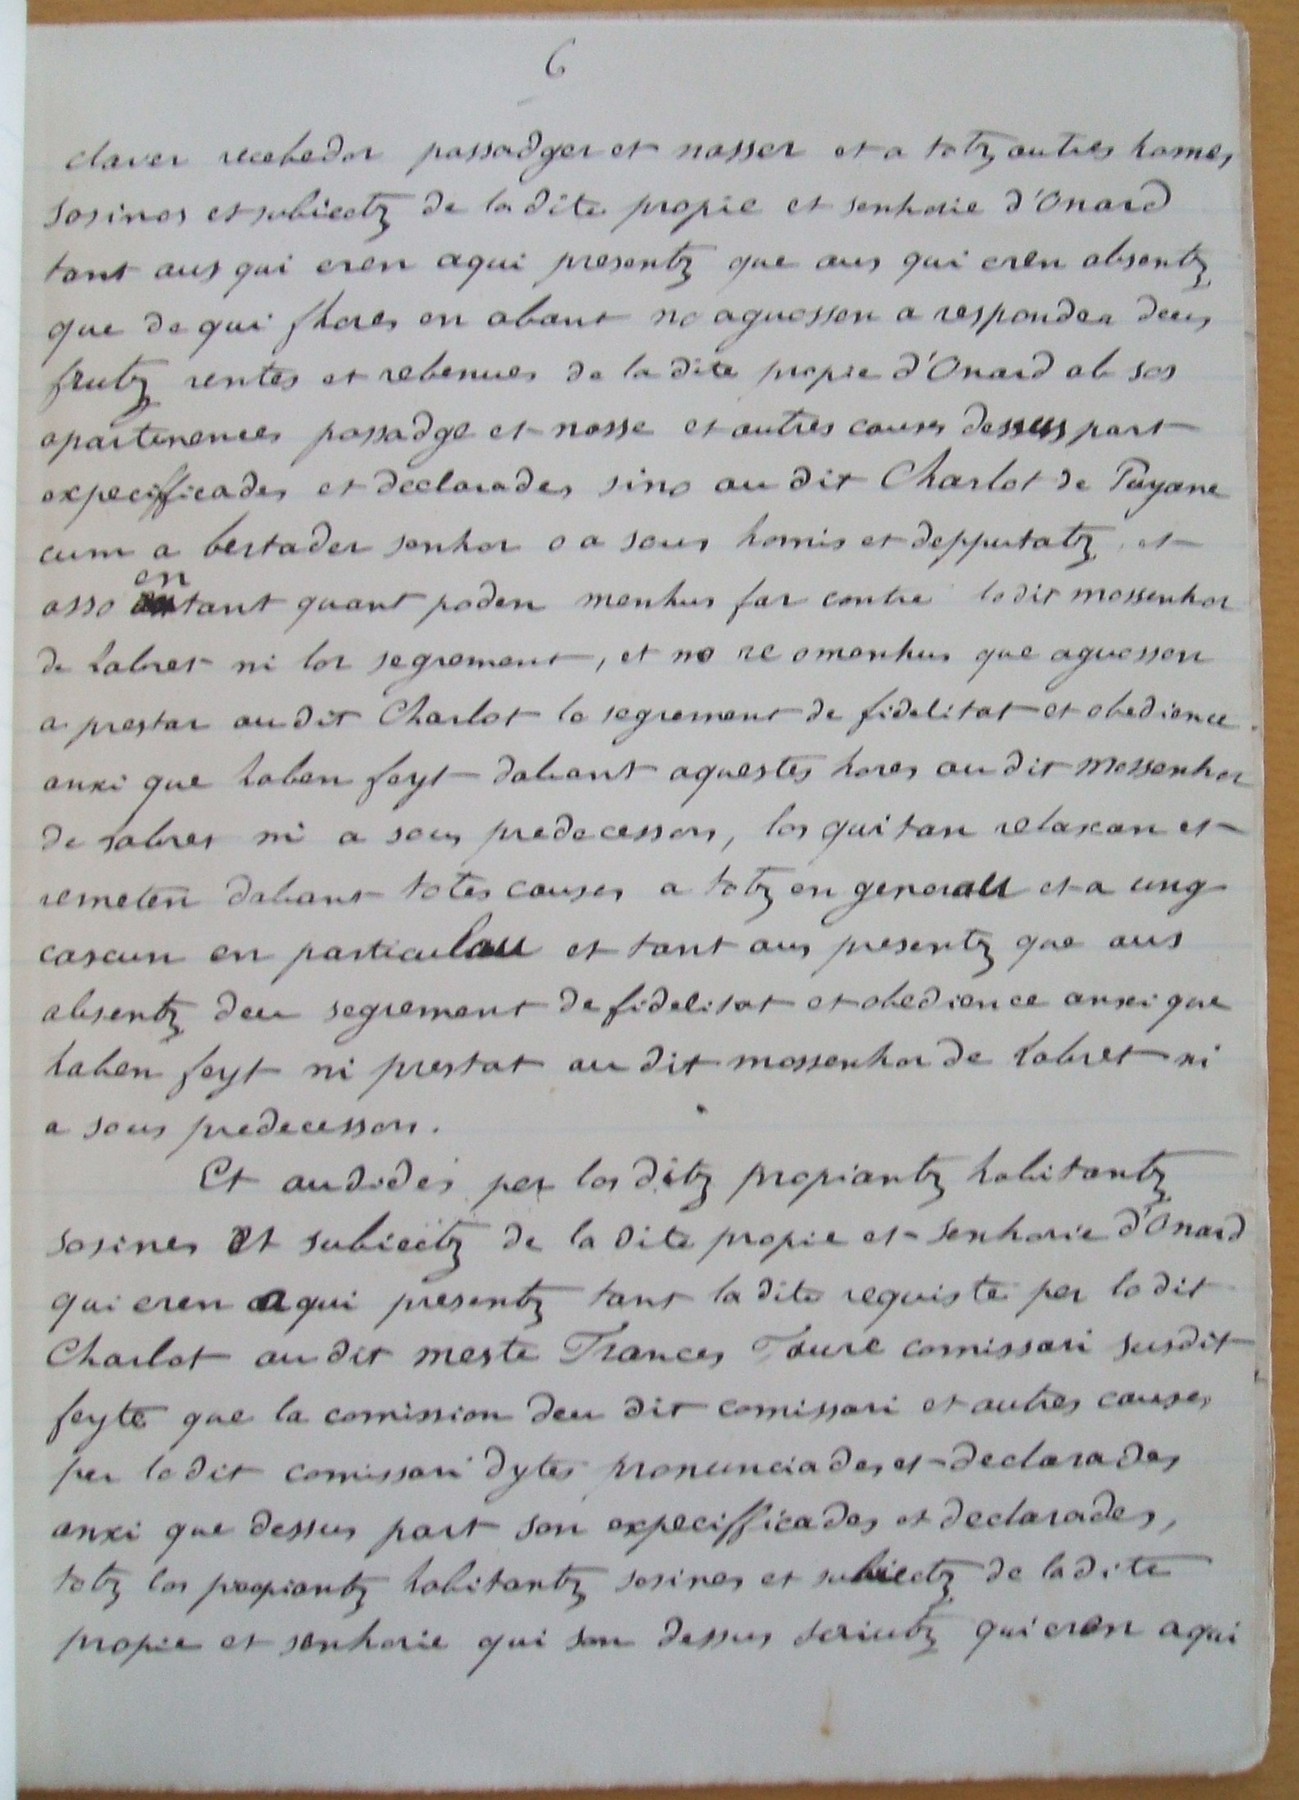 6
claver recebedor passadger et nasser et a totz autres homes
sosines et subiectz de la dite propie et senhorie d'Onard
tant aus qui eren aqui presentz que aus qui eren absentz
que de qui fhores en abant no aguossen a responder deus
frutz rentes et rebenues de la dite propie d'Onard ab ses
apartenences passadge et nasse et autres causes dessus part
expecifficades et declarades sino au dit Charlot de Poyane
cum a bertader senhor o a sous homis et depputatz et
asso en tant quant poden menhus far contre lo dit mossenhor
de Labret ni lor segrement, et no re omenhus que aguossen
a prestar au dit Charlot lo segrement de fidelitat et obedience
anxi que haben feyt dabant aquestes hores au dit mossenhor
de Labret ni a sous predecessors, los quitan relaxan et
remeten dabant totes causes a totz en generau et a ung
cascun en particulau et tant aus presentz que aus
absentz deu segrement de fidelitat et obedience anxi que
haben feyt ni prestat au dit mossenhor de Labret ni
a sous predecessors.
Et audides per los ditz propiantz habitantz
sosines et subiectz de la dite propie et senhorie d'Onard
qui eren aqui presentz tant la dite requiste per lo dit
Charlot au dit meste Frances Faure comissari susdit
feyte que la comission deu dit comissari et autres causes
per lo dit comissari dytes pronunciades et declarades
anxi que dessus part son expecifficades et declarades,
totz los propiantz habitantz sosines et subiectz de la dite
propie et senhorie qui son dessus scriutz qui eren aqui